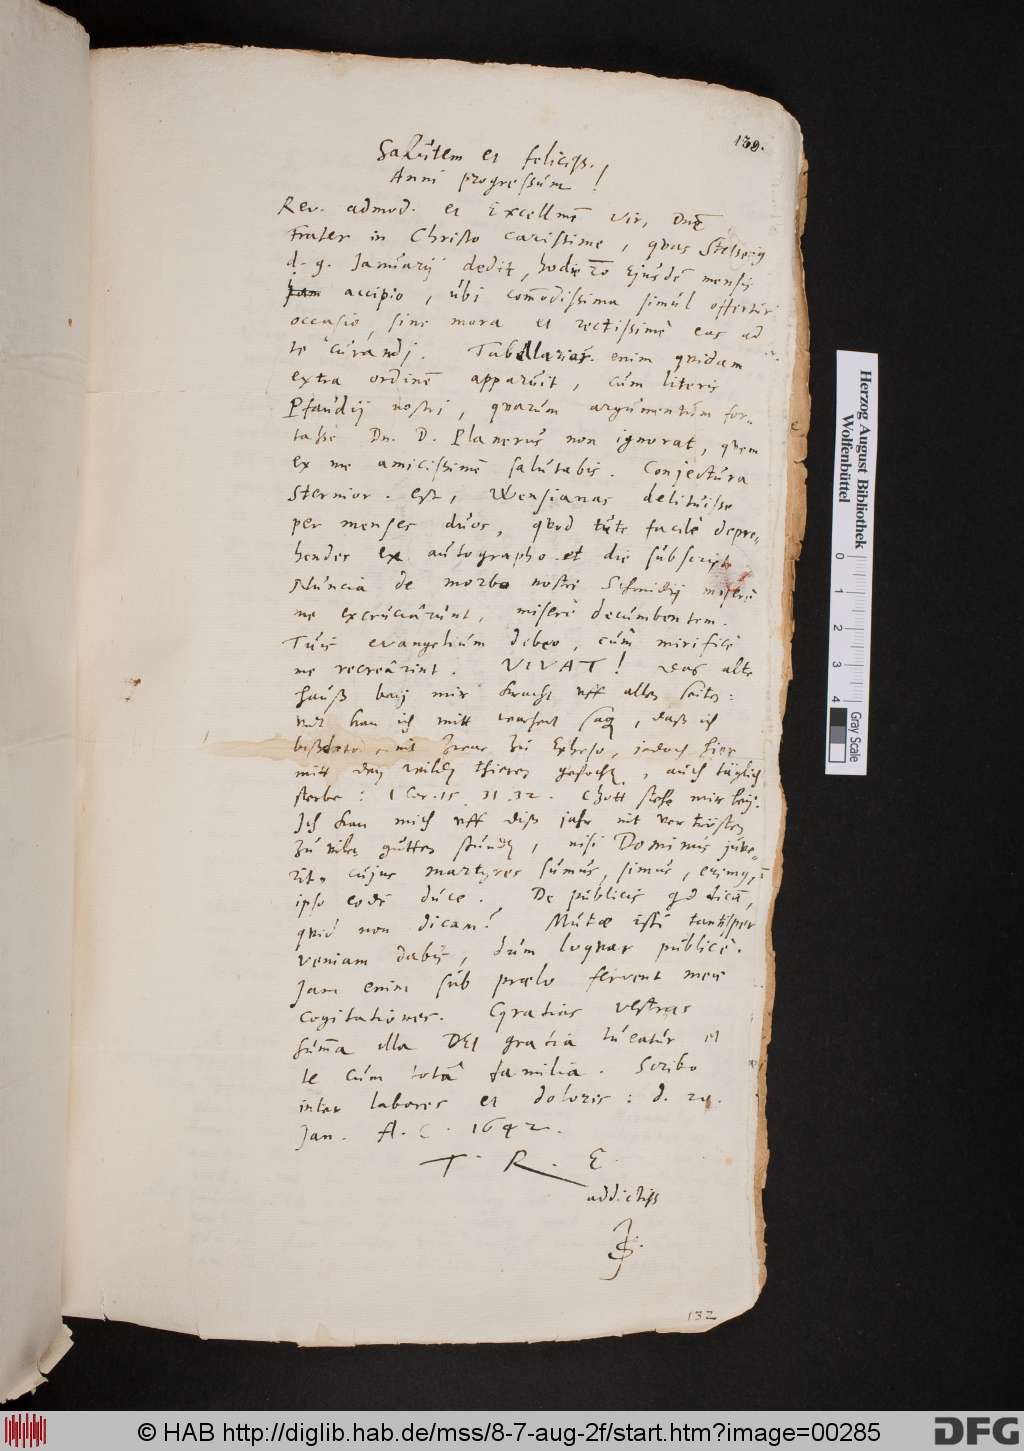 139.
Salutem et feliciss.
Anni progressum!
Rev. admod. et Excellme Vir, Dne
Frater in Christo carissime, quas
d. 9. Januarij dedit, hodie 20 ejusde mensis
accipio, ubi commodissima simul offertur
occasio, sine mora et rectissime eas ad
te curandj. Tabellarius enim quidam
extra ordine apparuit, cum literis
Pfaudij nostri, quarum argumentum for-
tasse Dn. D. Planerus non ignorat, quem
ex me amicissime salutabis. Conjectura
est, Wensianas delituisse
per menses duos, quod tute facile depre-
hendes ex autographo et die subscripto
Nuncia de morbo nostri Schmidij misere
me excruciarunt, misere decumbentem.
Tuis evangelium debeo, cum mirifice
me recrearint. VIVAT! das alte
Hauß bey mir kracht uff allen seiten:
und kan ich mitt warheit sag, daß ich
nit zwar zu Epheso, jedoch hier
mitt den wilden thieren gefocht, auch täglich
sterbe: 1 Cor. 15. 31. 32. Gott stehe mir bey.
Ich kan mich uff diß jahr nit vertrösten
zu viler gutter stund, nisi Dominus juve-
rit, cujus martyres sumus, simus, erimq,
ipso eode duce. De publicis qd dica,
quid non dicam? Mutae isti tantisper
veniam dabis, dum loquar publice.
Jam enim sub praelo fervent meae
cogitationes. Gratias vestras
summa illa DEI gratia tueatur et
te cum tota familia. Scribo
inter labores et dolores: d.
Jan. A. C. 1642.
T. R. E
addictiss
JS.
132
Herzog August Bibliothek
Wolfenbüttel
0 1 2 3 4
Gray Scale
© HAB http://diglib.hab.de/mss/8-7-aug-2f/start.htm?image=00285
DFG